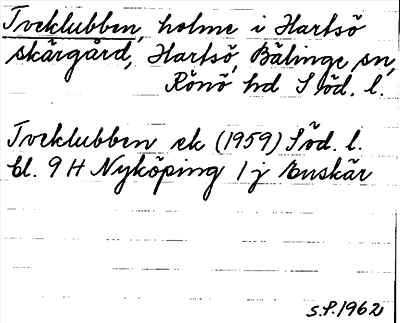 Tveklubben, holme i Hartsö
skärgård, Hartsö, Bälinge sn,
Rönö hd Söd. l.
Tveklubben ek (1959) Söd. l.
bl. 9 H Nyköping 1 j Enskär
S.P. 1962